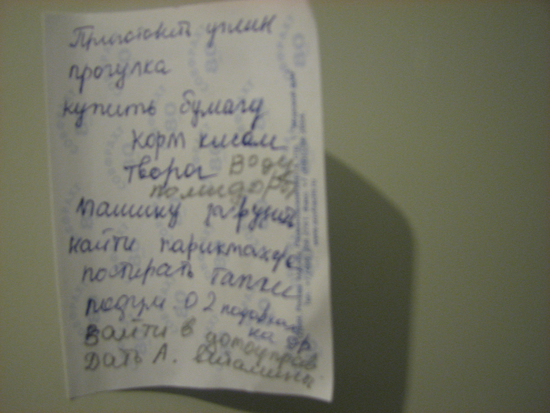 Приготовить ужин
прогулка
купить бумагу
корм кисам
творог воду
помидоры
машинку загрузить
найти парикмахера
постирать тапки
подум о 2 подарках
на др
Зайти в домоуправ
Дать А. витамины